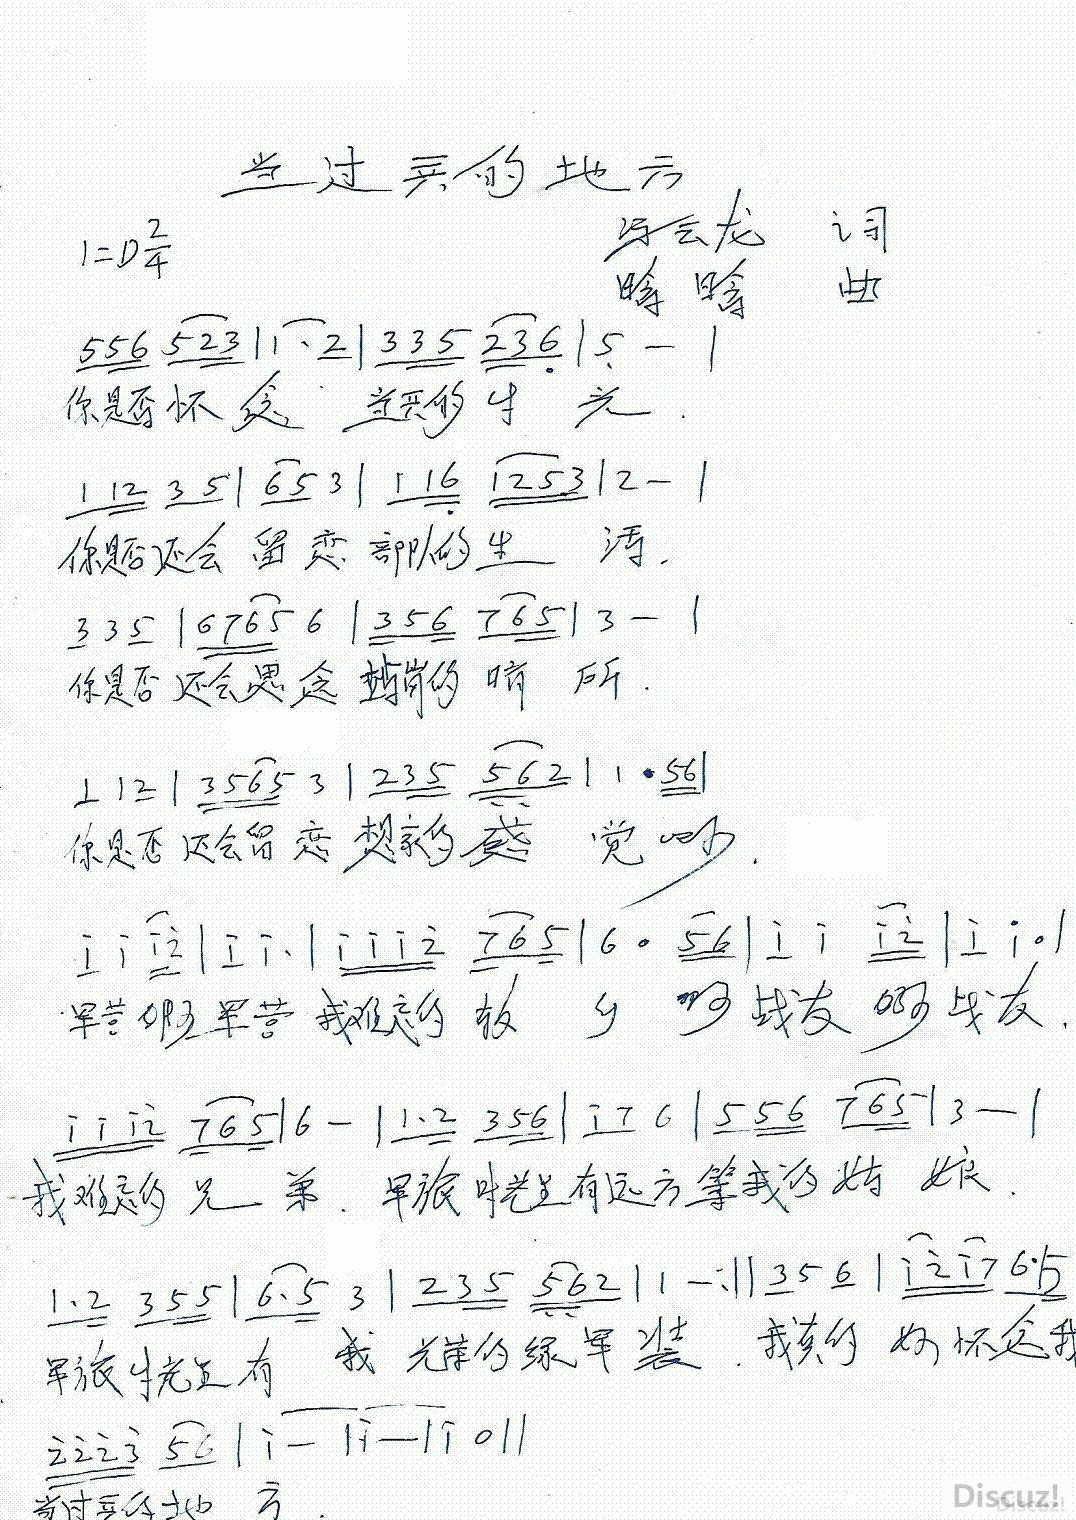 当过兵的地方
1=D 2/4
冯云龙 词
晗晗 曲
556 523 | 1· 2 | 335 236 | 5 - |
你是否怀念 当兵的时光.
1 12 35 | 65 3 | 1 16 1253 | 2 - |
你是否还会留恋部队的生活.
3 3 5 | 6765 6 | 356 765 | 3 - |
你是否还会思念站岗的哨所.
1 12 | 3565 3 | 235 562 | 1 · 56 |
你是否还会留恋想家的感觉啊.
i i i2 | i i· | i i i 2 765 | 6 · 56 | i i i2 | i i· |
军营啊军营我难忘的故乡啊战友啊战友.
i i i2 765 | 6 - | 1·2 356 | i7 6 | 556 765 | 3 - |
我难忘的兄弟.军旅时光里有远方等我的姑娘.
1·2 355 | 6·5 3 | 235 562 | 1 - :|| 356 | i2i7 6·5
军旅时光里有我光荣的绿军装.我真的好怀念我
2223 56 | i - | i - | i 0 ||
当过兵的地方.
Discuz!
Discuz!